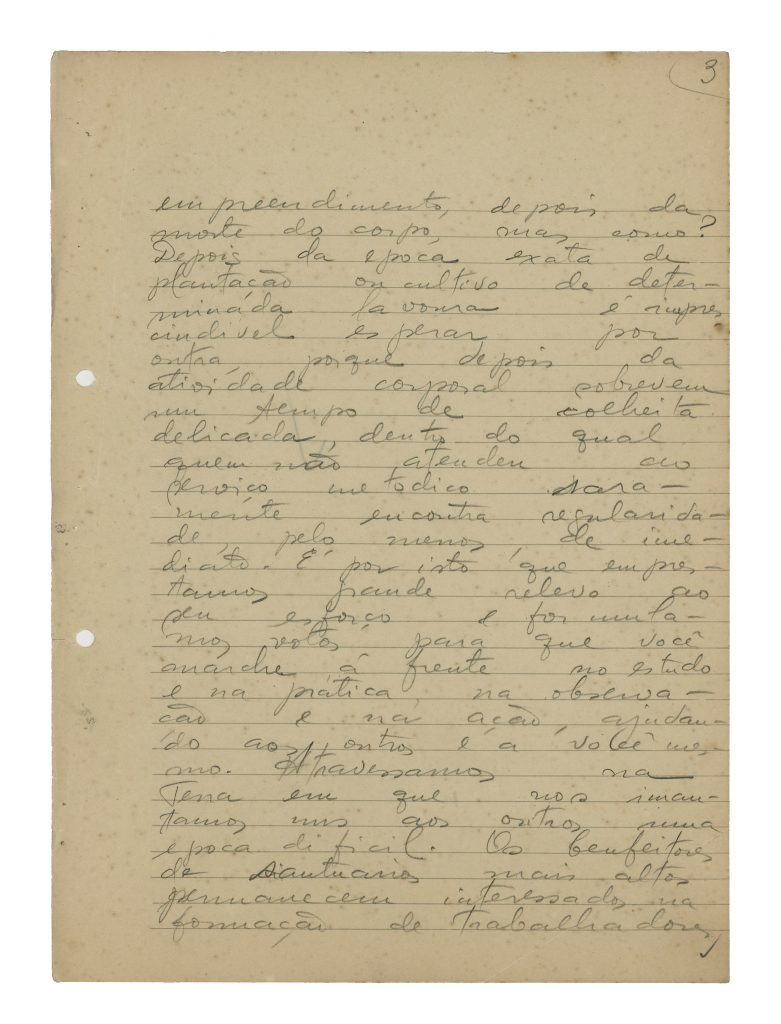 3
empreendimento, depois da
morte do corpo, mas como?
Depois da epoca exata de
plantação ou cultivo de deter-
minada lavoura é impres
cindivel esperar por
outra, porque depois da
atividade corporal sobrevem
um tempo de colheita
delicada, dentro do qual
quem não atendeu ao
serviço metodico rara-
mente encontra regularida-
de, pelo menos, de ime-
diato. É por isto que empres-
tamos grande relevo ao
seu esforço e formula-
mos votos para que você
marche á frente no estudo
e na prática, na observa-
ção e na ação, ajudan-
do aos outros e a você mes-
mo. Atravessamos na
Terra em que nos iman-
tamos uns aos outros uma
epoca dificil. Os benfeitores
de santuarios mais altos
permanecem interessados na
formação de trabalhadores,